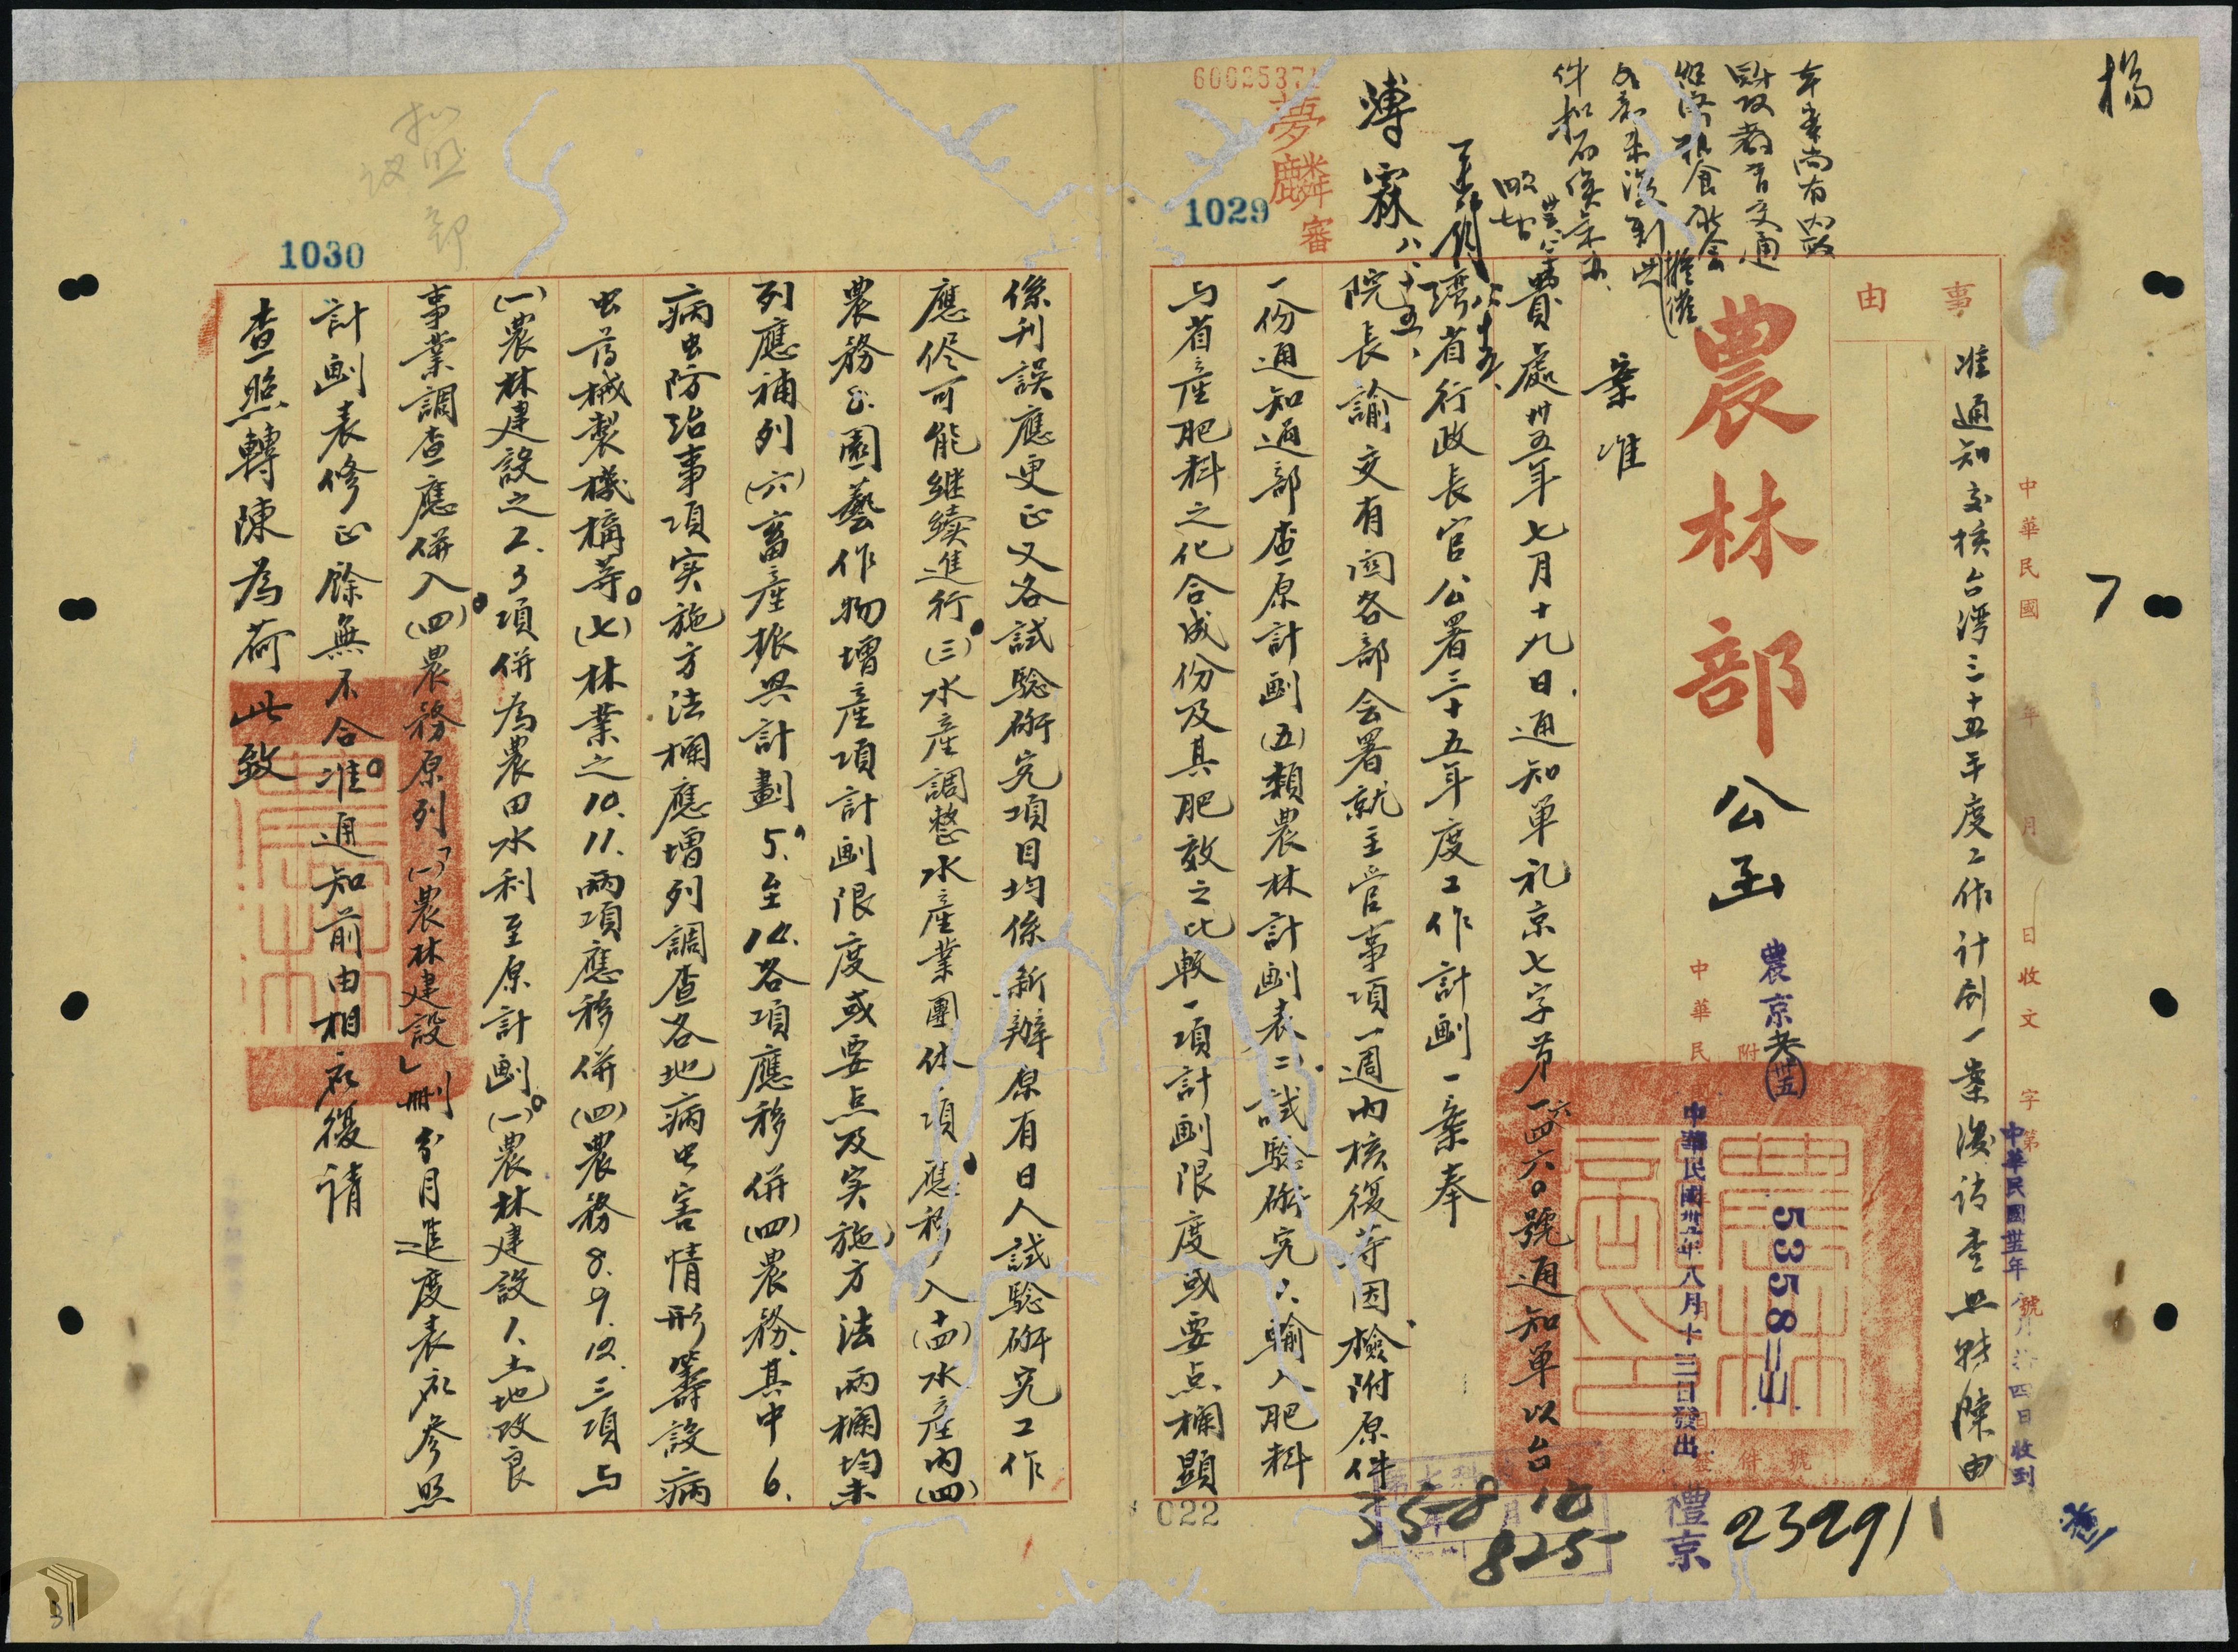 楊
7
事由
准通知交核台灣三十五年度工作計劃一案復請查照轉陳由
中華民國 年 月 日收文 字第 號
中華民國卅五年八月拾四日收到
農林部公函
農京 (卅五)
5358
中華民國卅五年八月十三日發出
禮京
23291
本案尚有內政
財政教育交通
經濟糧食社會
各部未復到此
件擬存俟彙辦
夢麟審
60025371
1029
案准
貴處卅五年七月十九日通知單禮京七字第一六四六〇號通知單以台
灣省行政長官公署三十五年度工作計劃一案奉
院長諭交有關各部会署就主管事項一週內核復等因檢附原件
一份通知過部查原計劃(五)類農林計劃表二試驗研究6.輸入肥料
与省產肥料之化合成份及其肥效之比較一項計劃限度或要点欄顯
35 8 16
825
022
1030
係刊誤應更正又各試驗研究項目均係新辦原有日人試驗研究工作
應尽可能继續進行(三)水產調整水產業團体項應移入(十四)水產內(四)
農務8.園藝作物增產項計劃限度或要点及实施方法兩欄均未
列應補列(六)畜產振興計劃5.至14.各項應移併(四)農務其中6.
病虫防治事項实施方法欄應增列調查各地病虫害情形籌設病
虫葯械製機構等(七)林業之10.11.兩項應移併(四)農務8.9.12.三項与
(一)農林建設之2.3項併為農田水利至原計劃(一)農林建設1.土地改良
事業調查應併入(四)農務原列「(一)農林建設」刪分月進度表應參照
計劃表修正餘無不合准通知前由相應復請
查照轉陳為荷此致